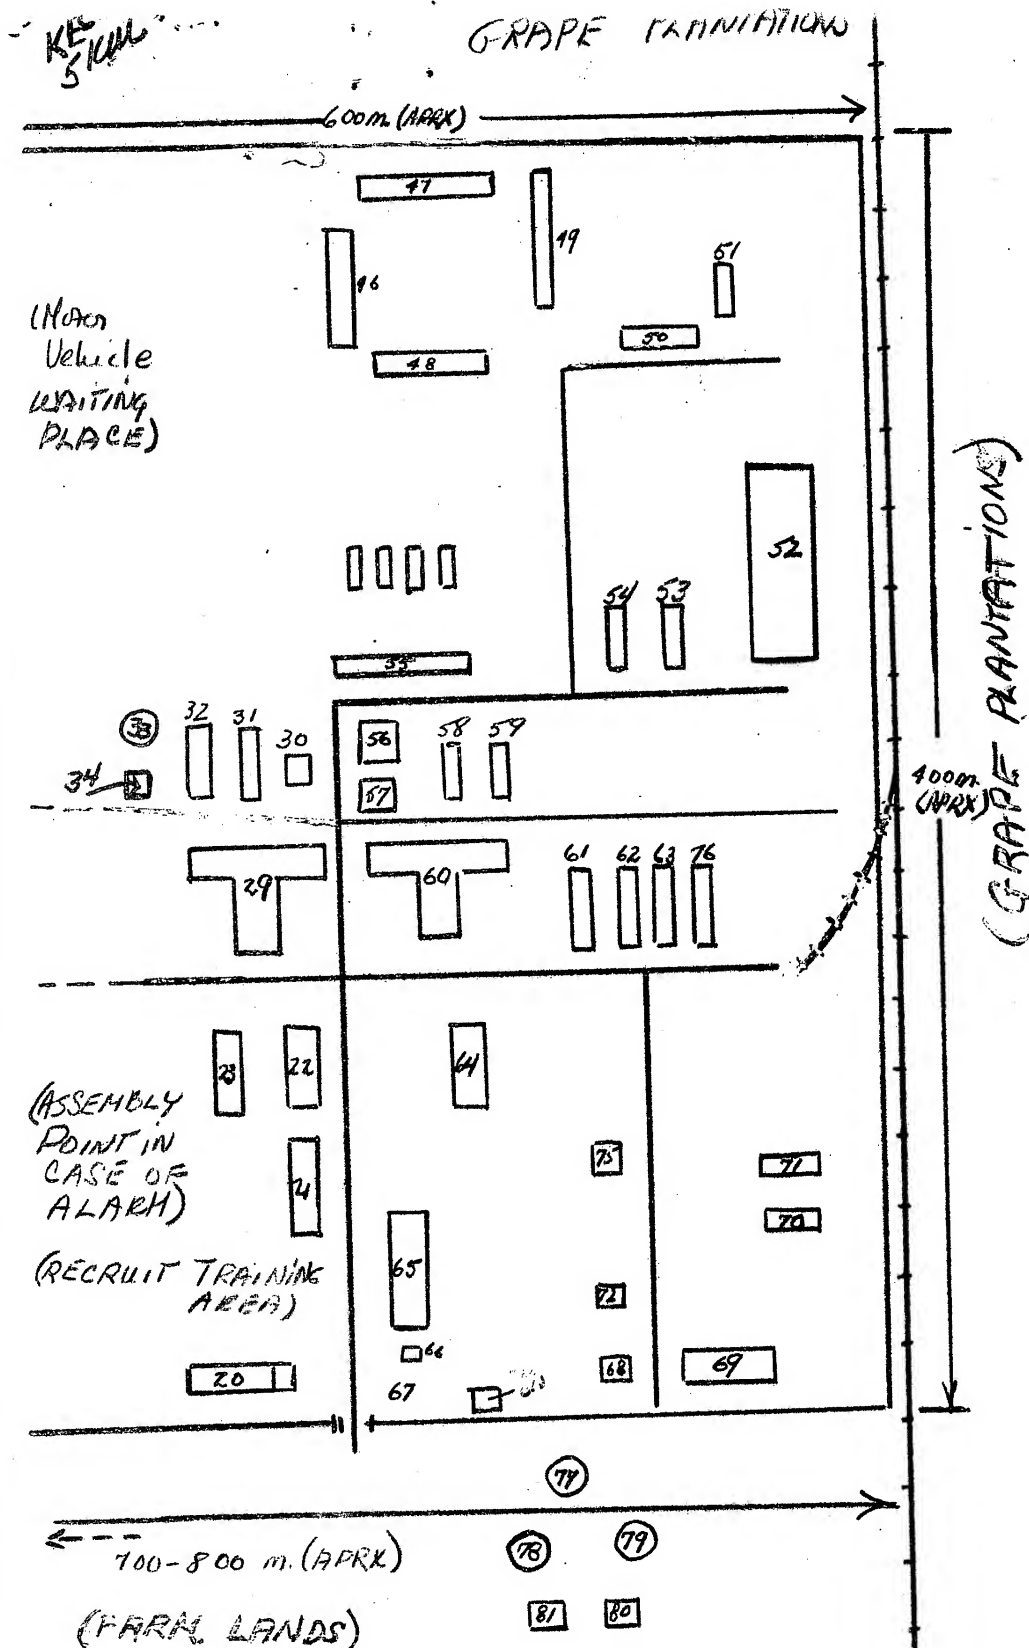 5 KM
GRAPE PLANTATION
600m. (APRX)
47
49
46
51
50
48
(Motor
Vehicle
WAITING
PLACE)
52
54 53
55
33 32 31 30 56 58 59
34 57
400m.
(APRX)
(GRAPE PLANTATIONS)
29 60 61 62 63 76
23 22 64
(ASSEMBLY
POINT IN
CASE OF
ALARM)
21
75 71
70
(RECRUIT TRAINING
AREA)
65
72
66
20 67 68 69
77
700-800 m. (APRX)
78 79
(FARM LANDS)
81 80